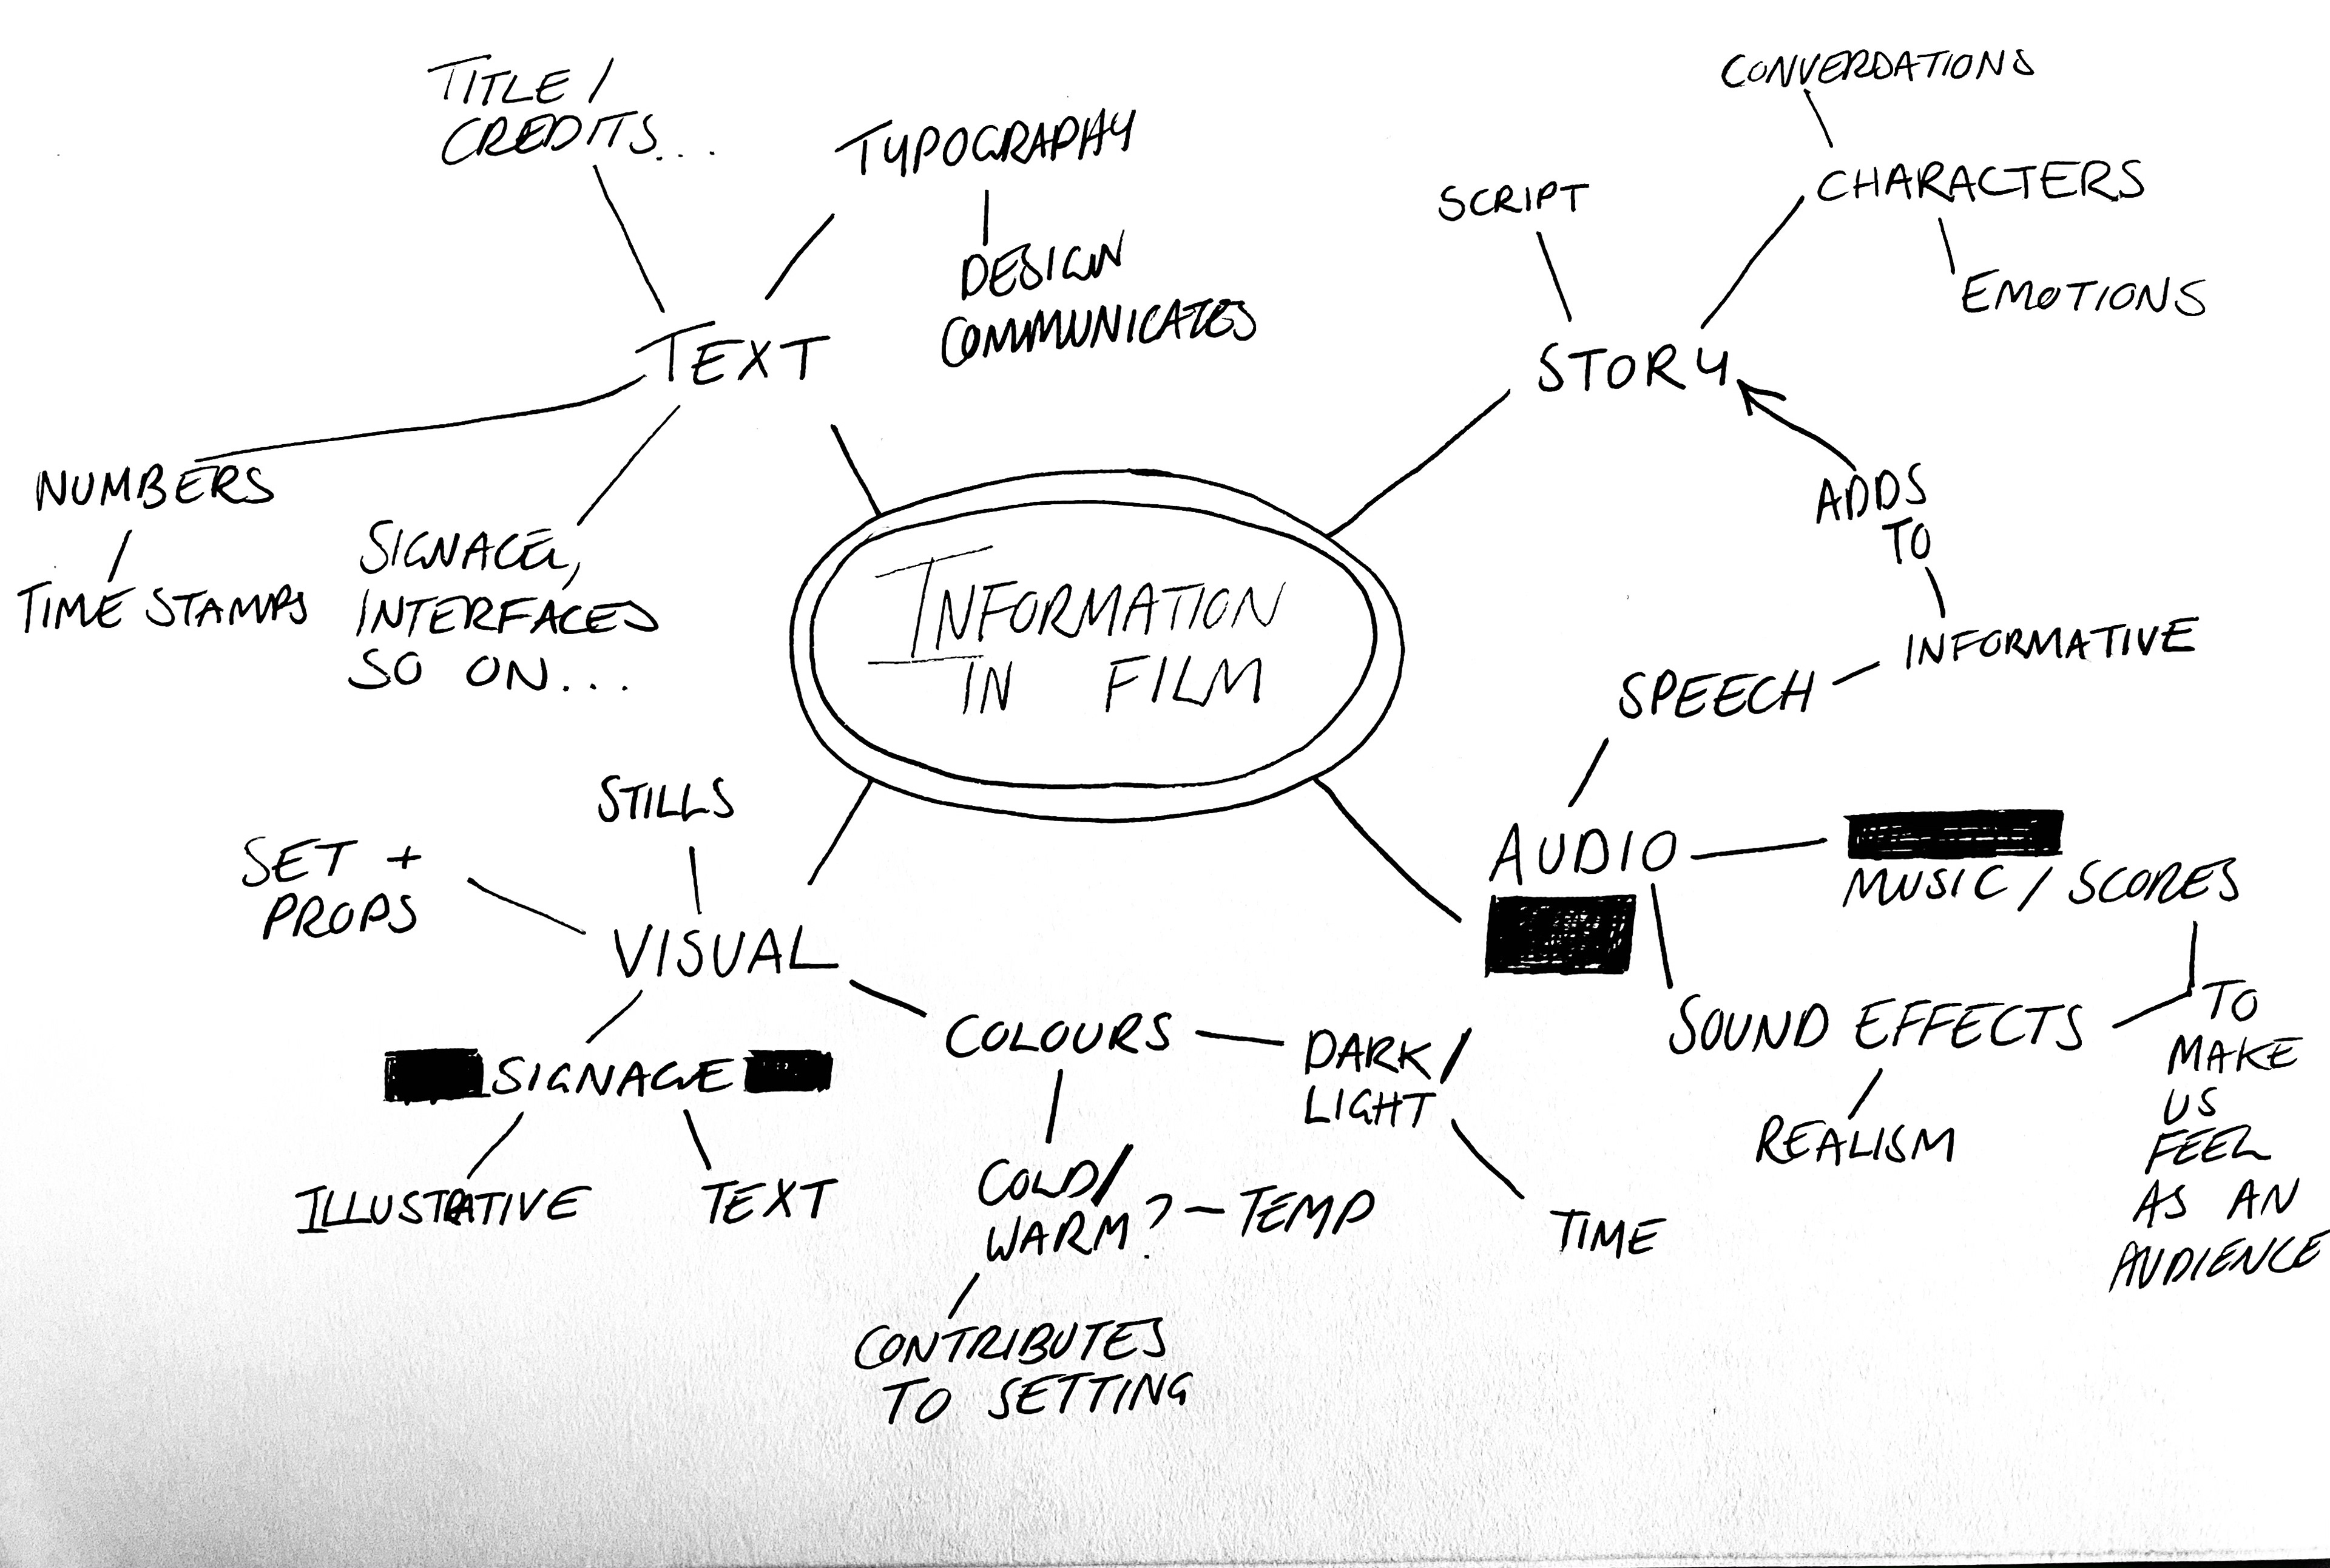 TITLE /
CREDITS...
TYPOGRAPHY
DESIGN
COMMUNICATES
TEXT
NUMBERS
TIME STAMPS
SIGNAGE,
INTERFACES
SO ON...
CONVERSATIONS
CHARACTERS
SCRIPT
EMOTIONS
STORY
ADDS
TO
INFORMATIVE
SPEECH
INFORMATION
IN FILM
STILLS
SET +
PROPS
VISUAL
SIGNAGE
ILLUSTRATIVE
TEXT
COLOURS
DARK/
LIGHT
COLD/
WARM? - TEMP
TIME
CONTRIBUTES
TO SETTING
AUDIO
MUSIC / SCORES
SOUND EFFECTS
REALISM
TO
MAKE
US
FEEL
AS AN
AUDIENCE